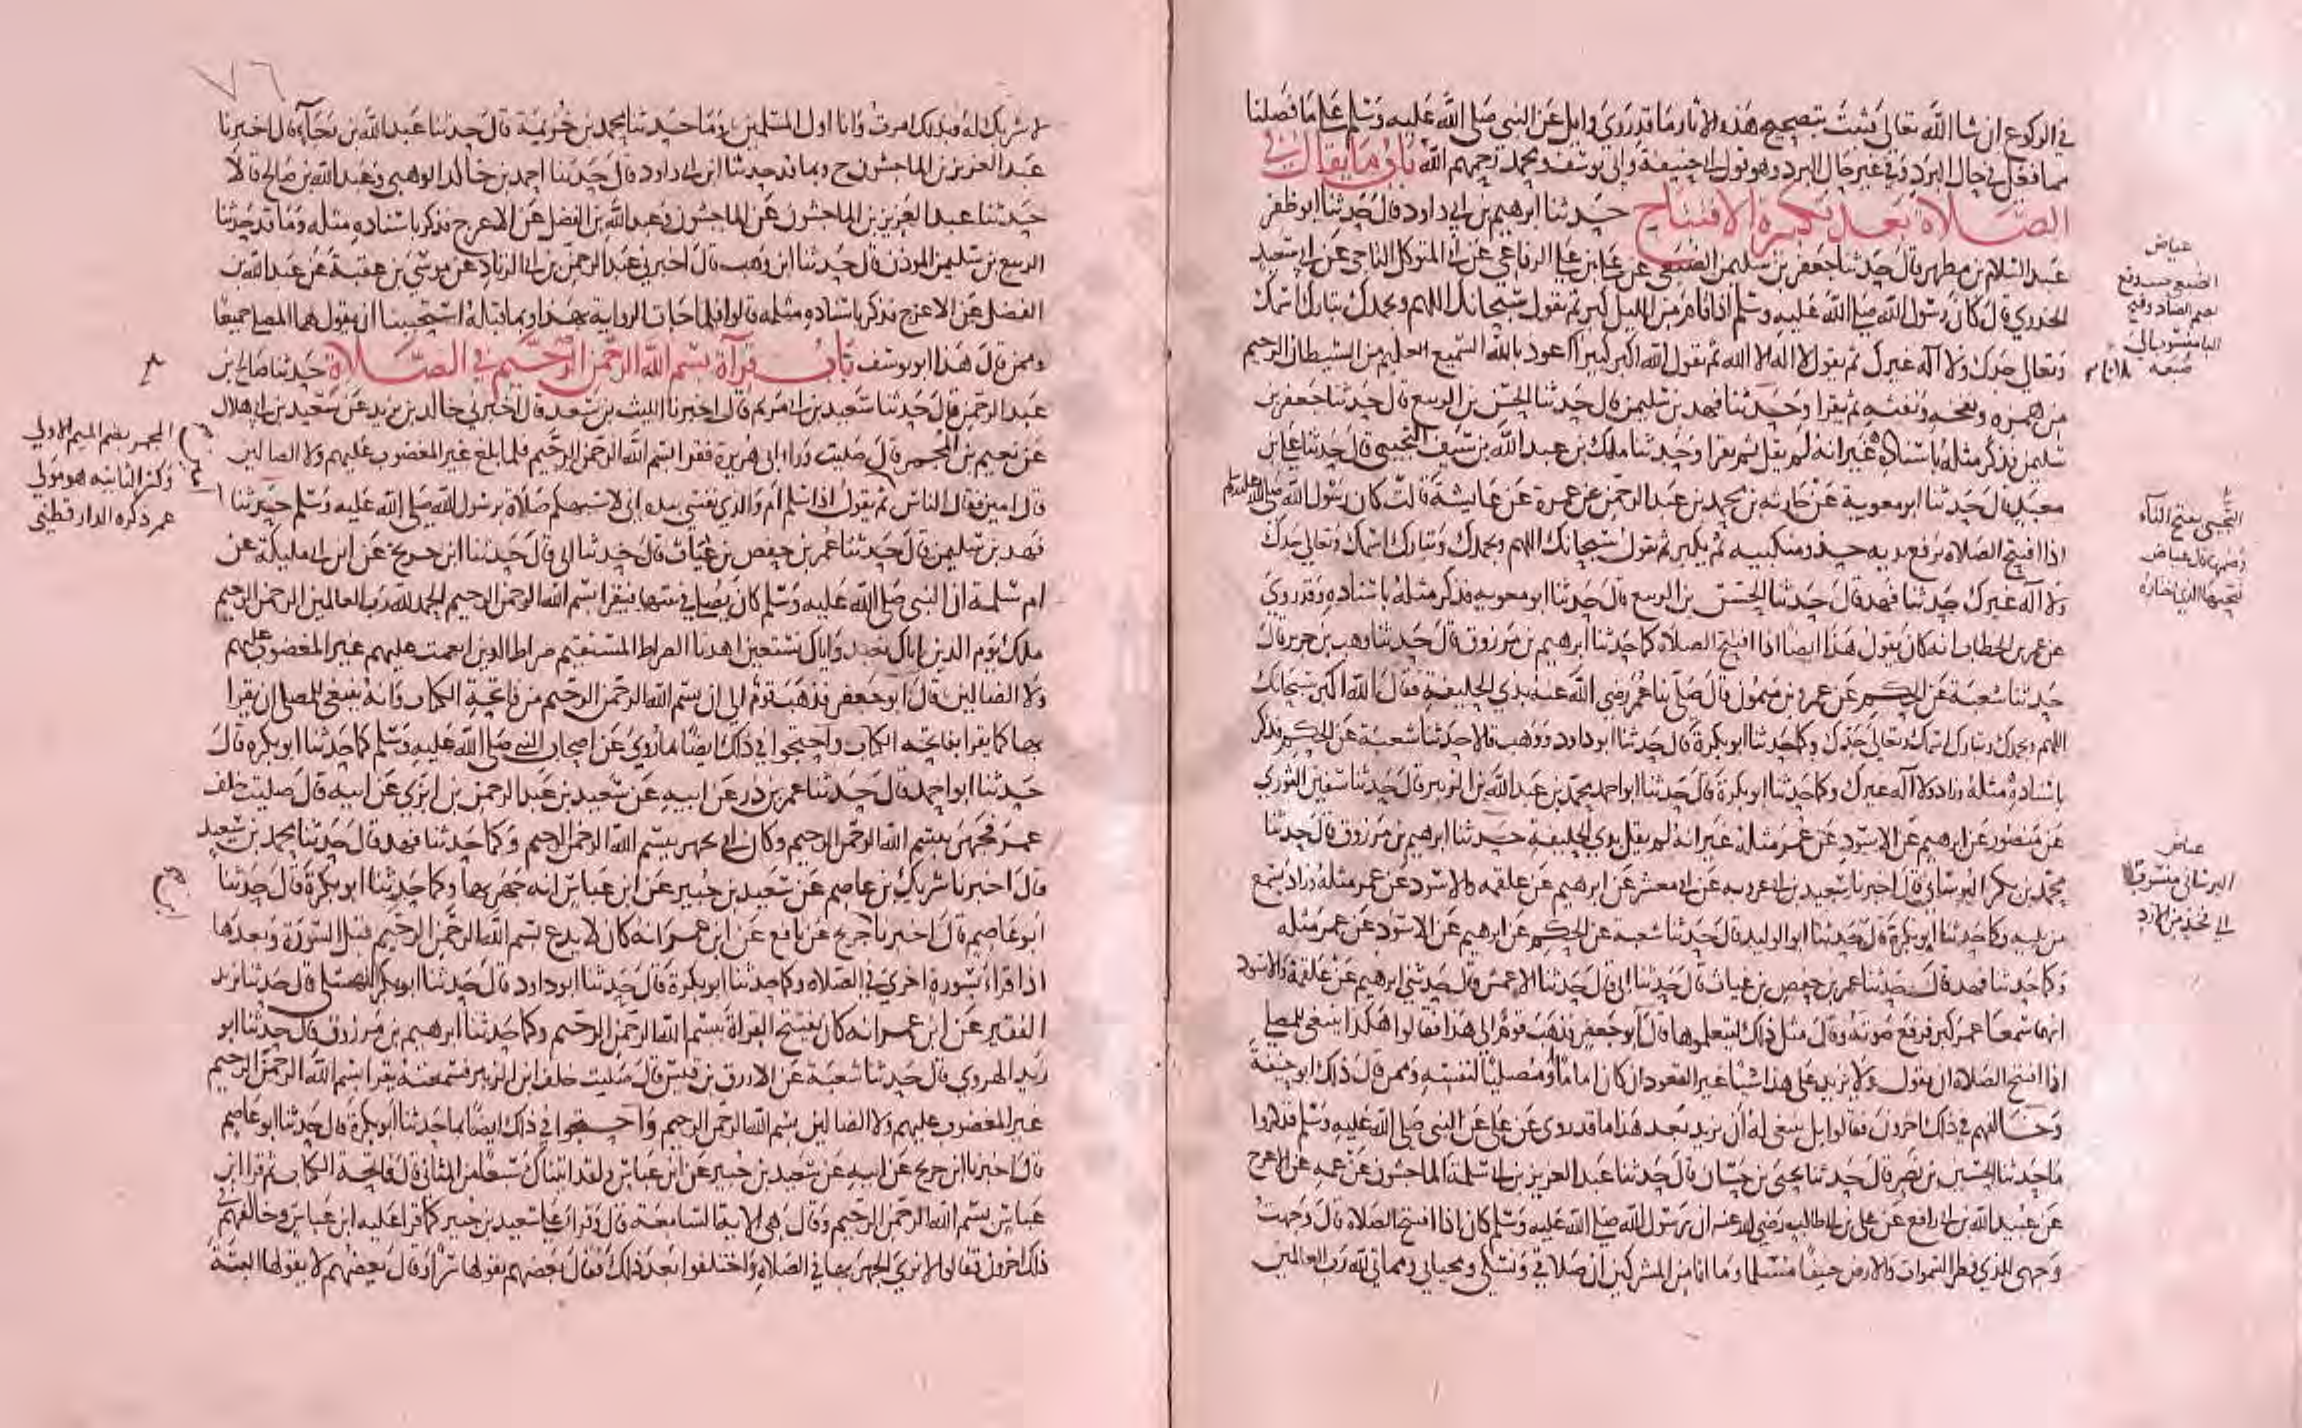 في الركوع ان شا الله تعالى فثبت بتصحيح هذه الاثار ما قد روى وايل عن النبي صلى الله عليه وسلم على ما فصلنا
مما فعل في حال البرد وفي غير حال البرد وهو قول ابي حنيفة وابي يوسف ومحمد رحمهم الله باب ما يقال في
الصلاة بعد تكبيرة الافتتاح حدثنا ابرهيم بن ابي داود قال حدثنا ابو ظفر
عبد السلام بن مطهر قال حدثنا جعفر بن سليمن الضبعي عن علي بن علي الرفاعي عن ابي المتوكل الناجي عن ابي سعيد
الخدري قال كان رسول الله صلى الله عليه وسلم اذا قام من الليل كبر ثم يقول سبحانك اللهم وبحمدك تبارك اسمك
وتعالى جدك ولا اله غيرك ثم يقول لا اله الا الله ثم يقول الله اكبر كبيرا اعوذ بالله السميع العليم من الشيطان الرجيم
من همزه ونفخه ونفثه ثم يقرا وحدثنا فهد بن سليمن قال حدثنا الحسن بن الربيع قال حدثنا جعفر بن
سليمن فذكر مثله باسناده غير انه لم يقل ثم يقرا وحدثنا ملك بن عبد الله بن سيف التجيبي قال حدثنا علي بن
معبد قال حدثنا ابو معوية عن حارثة بن محمد بن عبد الرحمن عن عمرة عن عايشة قالت كان رسول الله صلى الله عليه وسلم
اذا افتتح الصلاه يرفع يديه حذو منكبيه ثم يكبر ثم يقول سبحانك اللهم وبحمدك وتبارك اسمك وتعالى جدك
ولا اله غيرك حدثنا فهد قال حدثنا الحسن بن الربيع قال حدثنا ابو معوية فذكر مثله باسناده وقد روي
عن عمر بن الخطاب انه كان يقول هذا ايضا اذا افتتح الصلاه كما حدثنا ابرهيم بن مرزوق قال حدثنا وهب بن جرير قال
حدثنا شعبة عن الحكم عن عمرو بن ميمون قال صلى بنا عمر رضي الله عنه بذي الحليفة فقال الله اكبر سبحانك
اللهم وبحمدك وتبارك اسمك وتعالى جدك وكما حدثنا ابو بكرة قال حدثنا ابو داود ووهب قالا حدثنا شعبة عن الحكم فذكر
باسناده مثله وزاد ولا اله غيرك وكما حدثنا ابو بكرة قال حدثنا ابو احمد محمد بن عبد الله بن الزبير قال حدثنا سفين الثوري
عن منصور عن ابرهيم عن الاسود عن عمر مثله غير انه لم يقل بذي الحليفة حدثنا ابرهيم بن مرزوق قال حدثنا
محمد بن بكر البرساني قال اخبرنا سعيد بن ابي عروبه عن ابي معشر عن ابرهيم عن علقمه والاسود عن عمر مثله وزاد يسمع
من يليه وكما حدثنا ابو بكرة قال حدثنا ابو الوليد قال حدثنا شعبة عن الحكم عن ابرهيم عن الاسود عن عمر مثله
وكما حدثنا فهد قال حدثنا عمر بن حفص بن غياث قال حدثنا ابي قال حدثنا الاعمش قال حدثني ابرهيم عن علقمة والاسود
انهما سمعا عمر كبر فرفع صوته وقال مثل ذلك ليتعلموها قال ابو جعفر فذهب قوم الى هذا فقالوا هكذا ينبغي للمصلي
اذا افتتح الصلاه ان يقول ولا يزيد على هذا شيا غير التعوذ ان كان اماما او مصليا لنفسه وممن قال ذلك ابو حنيفة
وخالفهم في ذلك اخرون فقالوا بل ينبغي له ان يزيد بعد هذا ما قد روي عن علي عن النبي صلى الله عليه وسلم فذكروا
ما حدثنا الحسين بن نصر قال حدثنا يحيى بن حسان قال حدثنا عبد العزيز بن ابي سلمة الماجشون عن عمه عن الاعرج
عن عبيد الله بن ابي رافع عن علي بن ابي طالب رضي الله عنه ان رسول الله صلى الله عليه وسلم كان اذا افتتح الصلاه قال وجهت
وجهي للذي فطر السموات والارض حنيفا مسلما وما انا من المشركين ان صلاتي ونسكي ومحياي ومماتي لله رب العالمين
عياض
الضبعي
بضم الضاد وفتح
البا منسوب الى
ضبعه
التجيبي بفتح التاء
وضمها قال عياض
عياض
البرساني منسوب
الى فخذ من الازد
٧٦
لا شريك له وبذلك امرت وانا اول المسلمين وما حدثنا محمد بن خزيمة قال حدثنا عبد الله بن رجاء قال اخبرنا
عبد العزيز بن الماجشون ح وبما قد حدثنا ابن ابي داود قال حدثنا احمد بن خالد الوهبي وعبد الله بن صالح قالا
حدثنا عبد العزيز بن الماجشون عن الماجشون وعبد الله بن الفضل عن الاعرج فذكر باسناده مثله وما قد حدثنا
الربيع بن سليمن الموذن قال حدثنا ابن وهب قال اخبرني عبد الرحمن بن ابي الزناد عن موسى بن عقبة عن عبد الله بن
الفضل عن الاعرج فذكر باسناده مثله قالوا فلما جات الرواية بهذا وبما قبله استحببنا ان يقولهما المصلي جميعا
وممن قال هذا ابو يوسف باب قرآة بسم الله الرحمن الرحيم في الصلاة حدثنا صالح بن
عبد الرحمن قال حدثنا سعيد بن ابي مريم قال اخبرنا الليث بن سعد قال اخبرني خالد بن يزيد عن سعيد بن ابي هلال
عن نعيم بن المجمر قال صليت ورا ابي هريرة فقرا بسم الله الرحمن الرحيم فلما بلغ غير المغضوب عليهم ولا الضالين
قال امين فقال الناس ثم يقول اذا سلم ام والذي نفسي بيده اني لاشبهكم صلاة برسول الله صلى الله عليه وسلم حدثنا
فهد بن سليمن قال حدثنا عمر بن حفص بن غياث قال حدثنا ابي قال حدثنا ابن جريج عن ابن ابي مليكة عن
ام سلمة ان النبي صلى الله عليه وسلم كان يصلي في بيتها فيقرا بسم الله الرحمن الرحيم الحمد لله رب العالمين الرحمن الرحيم
ملك يوم الدين اياك نعبد واياك نستعين اهدنا الصراط المستقيم صراط الذين انعمت عليهم غير المغضوب عليهم
ولا الضالين قال ابو جعفر فذهب قوم الى ان بسم الله الرحمن الرحيم من فاتحة الكتاب وانه ينبغي للمصلي ان يقرا
بها كما يقرا بفاتحه الكتاب واحتجوا في ذلك ايضا ما روي عن اصحاب النبي صلى الله عليه وسلم كما حدثنا ابو بكرة قال
حدثنا ابو احمد قال حدثنا عمر بن ذر عن ابيه عن سعيد بن عبد الرحمن بن ابزى عن ابيه قال صليت خلف
عمر فجهر ببسم الله الرحمن الرحيم وكان ابي يجهر ببسم الله الرحمن الرحيم وكما حدثنا فهد قال حدثنا محمد بن سعيد
قال اخبرنا شريك عن عاصم عن سعيد بن جبير عن ابن عباس انه جهر بها وكما حدثنا ابو بكرة قال حدثنا
ابو عاصم قال اخبرنا جريج عن نافع عن ابن عمر انه كان لا يدع بسم الله الرحمن الرحيم قبل السورة وبعدها
اذا قراء بسورة اخرى في الصلاه وكما حدثنا ابو بكرة قال حدثنا ابو داود قال حدثنا ابو بكر النهشلي قال حدثنا يزيد
الفقير عن ابن عمر انه كان يفتتح القراة ببسم الله الرحمن الرحيم وكما حدثنا ابرهيم بن مرزوق قال حدثنا ابو
زيد الهروي قال حدثنا شعبة عن الازرق بن قيس قال صليت خلف ابن الزبير فسمعته يقرا بسم الله الرحمن الرحيم
غير المغضوب عليهم ولا الضالين بسم الله الرحمن الرحيم واحتجوا في ذلك ايضا بما حدثنا ابو بكرة قال حدثنا ابو عاصم
قال اخبرنا ابن جريج عن ابيه عن سعيد بن جبير عن ابن عباس ولقد اتيناك سبعا من المثاني قال فاتحة الكتاب ثم قرا ابن
عباس بسم الله الرحمن الرحيم وقال هي الاية السابعة قال وقرا علي سعيد بن جبير كما قرا عليه ابن عباس وخالفهم في
ذلك اخرون فقالوا لا نرى الجهر بها في الصلاه واختلفوا بعد ذلك فقال بعضهم يقولها سرا وقال بعضهم لا يقولها البتة
المجمر بضم الميم الاولى
وكسر الثانيه هو مولى
عمر ذكره الدار قطني